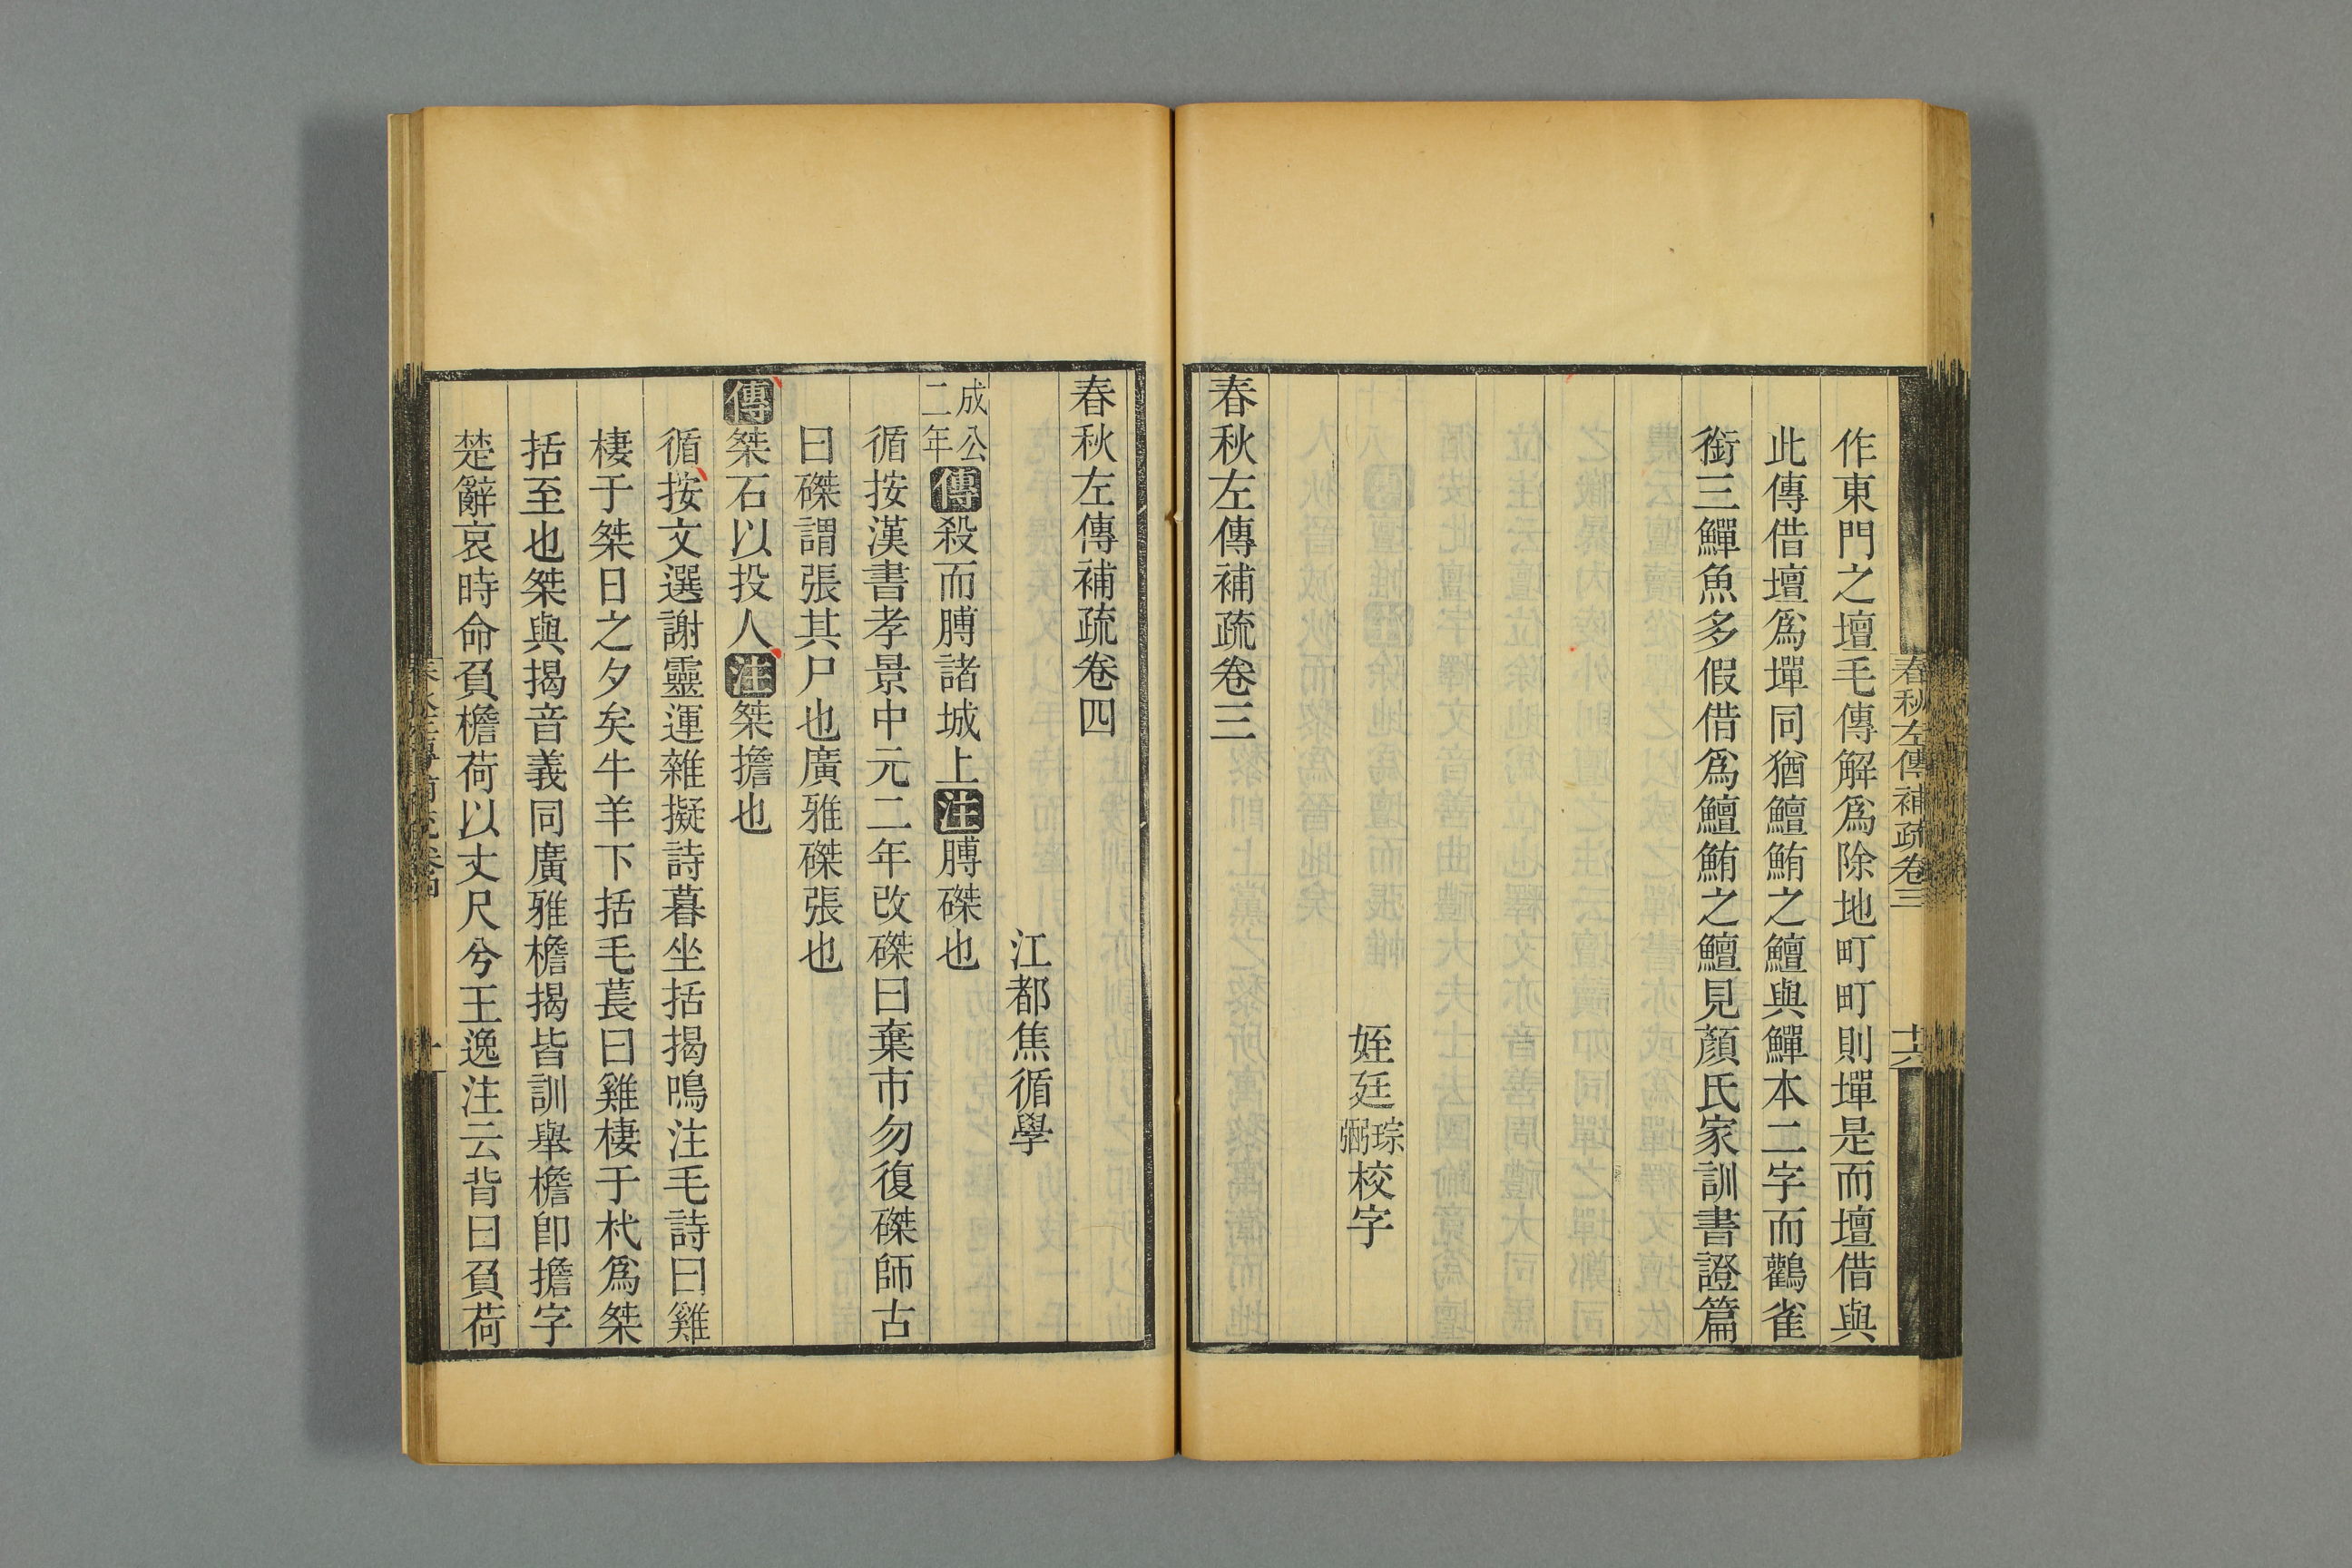 春秋左傳補疏卷三
十六
作東門之壇毛傳解爲除地町町則墠是而壇借與
此傳借壇爲墠同猶鱣鮪之鱣與鱓本二字而鸛雀
銜三鱓魚多假借爲鱣鮪之鱣見顏氏家訓書證篇
姪廷琮琥校字
春秋左傳補疏卷三
春秋左傳補疏卷四
江都焦循學
成公二年傳殺而膊諸城上注膊磔也
循按漢書孝景中元二年改磔曰棄市勿復磔師古
曰磔謂張其尸也廣雅磔張也
傳桀石以投人注桀擔也
循按文選謝靈運雜擬詩暮坐括揭鳴注毛詩曰雞
棲于桀日之夕矣牛羊下括毛萇曰雞棲于杙爲桀
括至也桀與揭音義同廣雅檐揭皆訓舉檐卽擔字
楚辭哀時命負檐荷以丈尺兮王逸注云背曰負荷